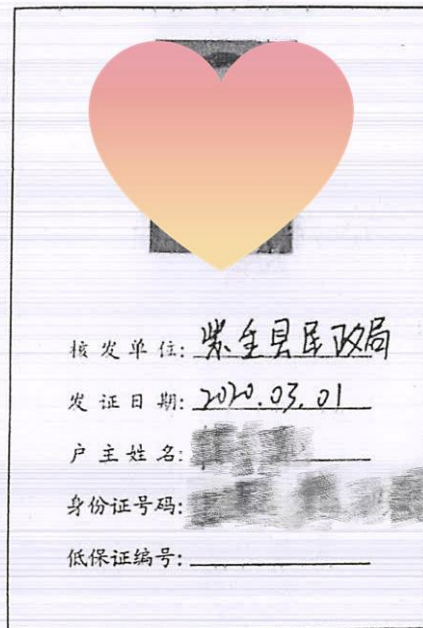 核发单位:紫金县民政局
发证日期:2020.03.01
户主姓名:
身份证号码:
低保证编号: